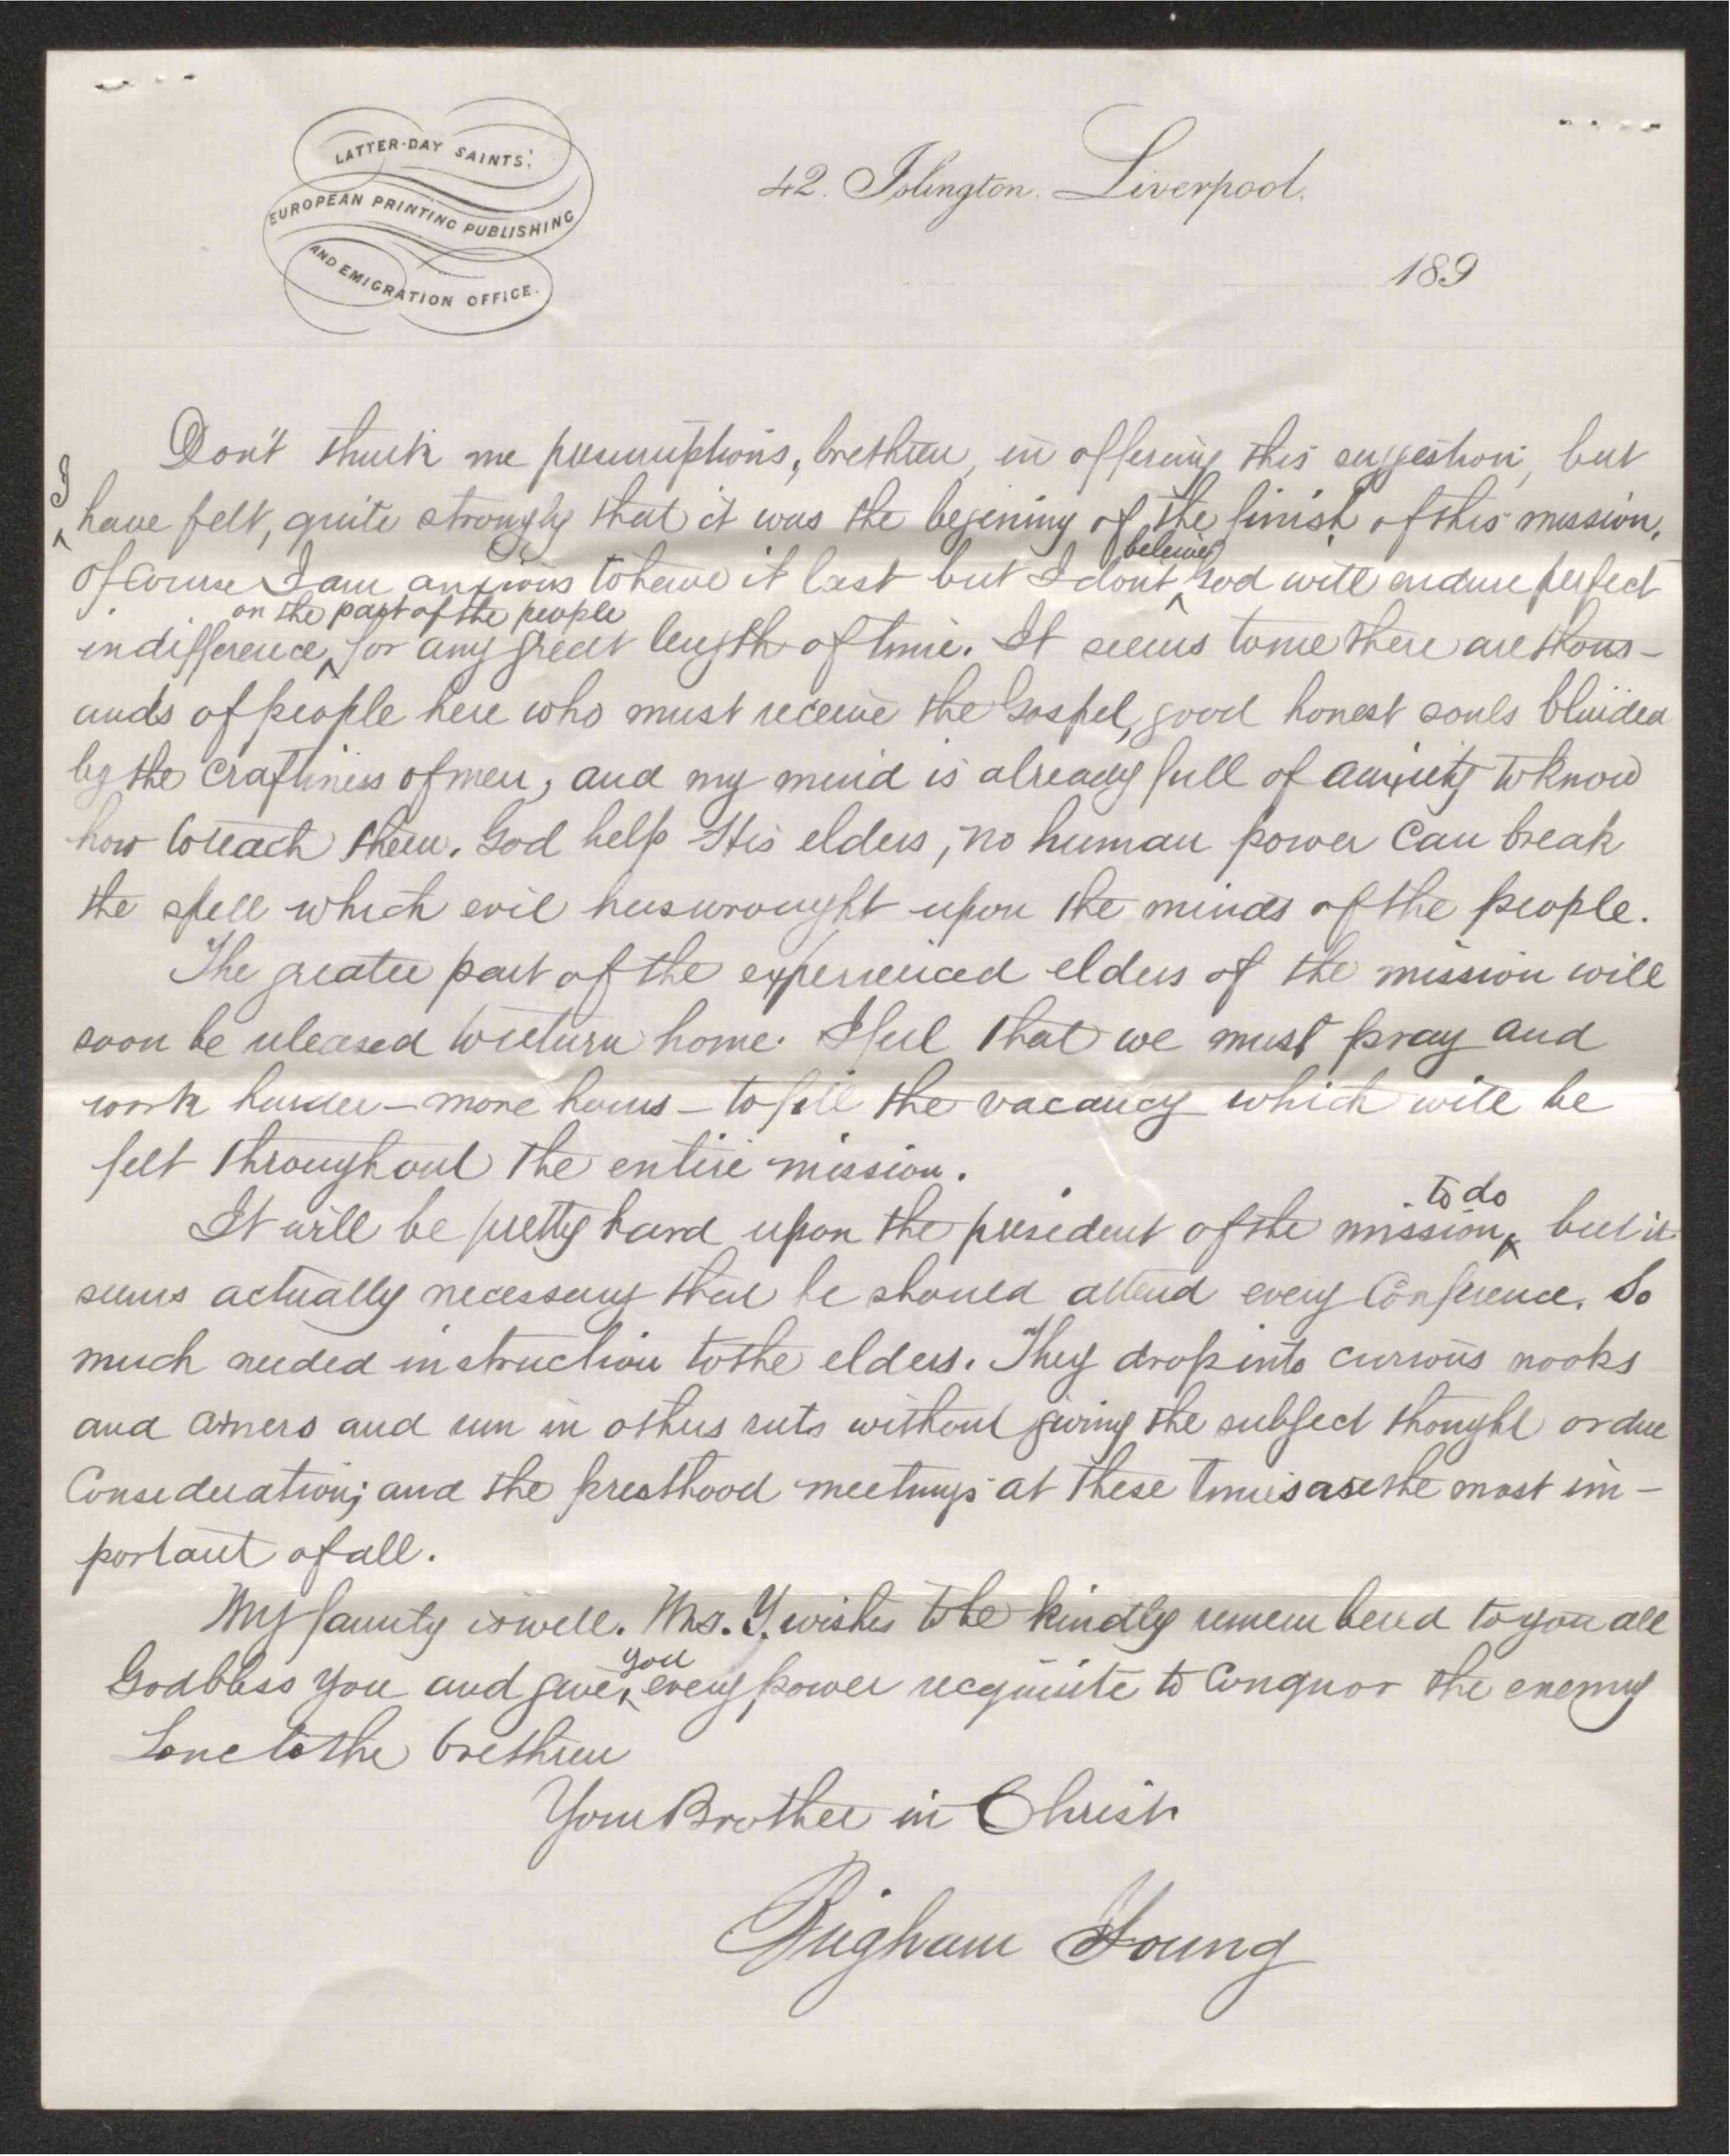 LATTER-DAY SAINTS'
EUROPEAN PRINTING PUBLISHING
AND EMIGRATION OFFICE.
42. Islington. Liverpool.
189
Don't think me presumptions, brethren, in offering this suggestion, but
I have felt, quite strongly that it was the begining of the finish of this mission.
Of course I am anxious to have it last but I dont believe God will endure perfect
indifference on the part of the people for any great length of time. It seems to me there are thous-
ands of people here who must receive the Gospel, good honest souls blinded
by the craftiness of men, and my mind is already full of anxiety to know
how to reach them. God help His elders, no human power can break
the spell which evil has wrought upon the minds of the people.
The greater part of the experienced elders of the mission will
soon be released to return home. I feel that we must pray and
work harder - more hours - to fill the vacancy which will be
felt throughout the entire mission.
It will be pretty hard upon the president of the mission to do, but it
seems actually necessary that he should attend every Conference. So
much needed instruction to the elders. They drop into curious nooks
and corners and run in others ruts without giving the subject thought or due
Consideration; and the presthood meetings at these times are the most im-
portant of all.
My family is well. Mrs. Y. wishes to be kindly remembered to you all
God bless you and give you every power requisite to conquor the enemy
Love to the brethren
Your Brother in Christ
Brigham Young